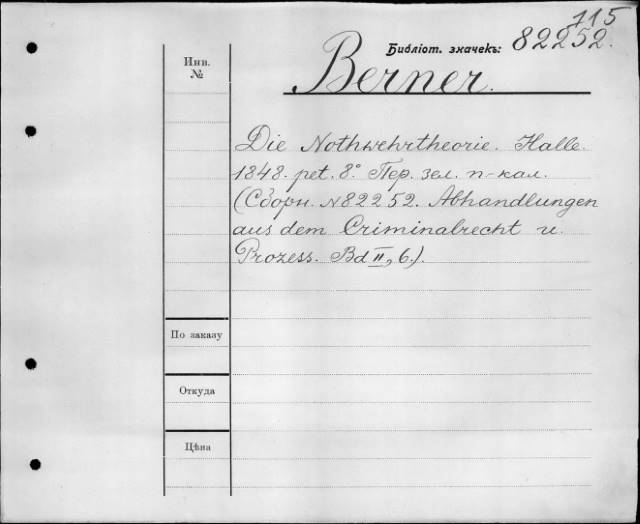 115
Библіот. значекъ: 82252.
Инв.
№
Berner.
Die Nothwehrtheorie. Halle.
1848. pet. 8º Пер. зел. п-кал.
(Сборн. №82252. Abhandlungen
aus dem Criminalrecht u.
Prozess. Bd II, 6.).
По заказу
Откуда
Цѣна